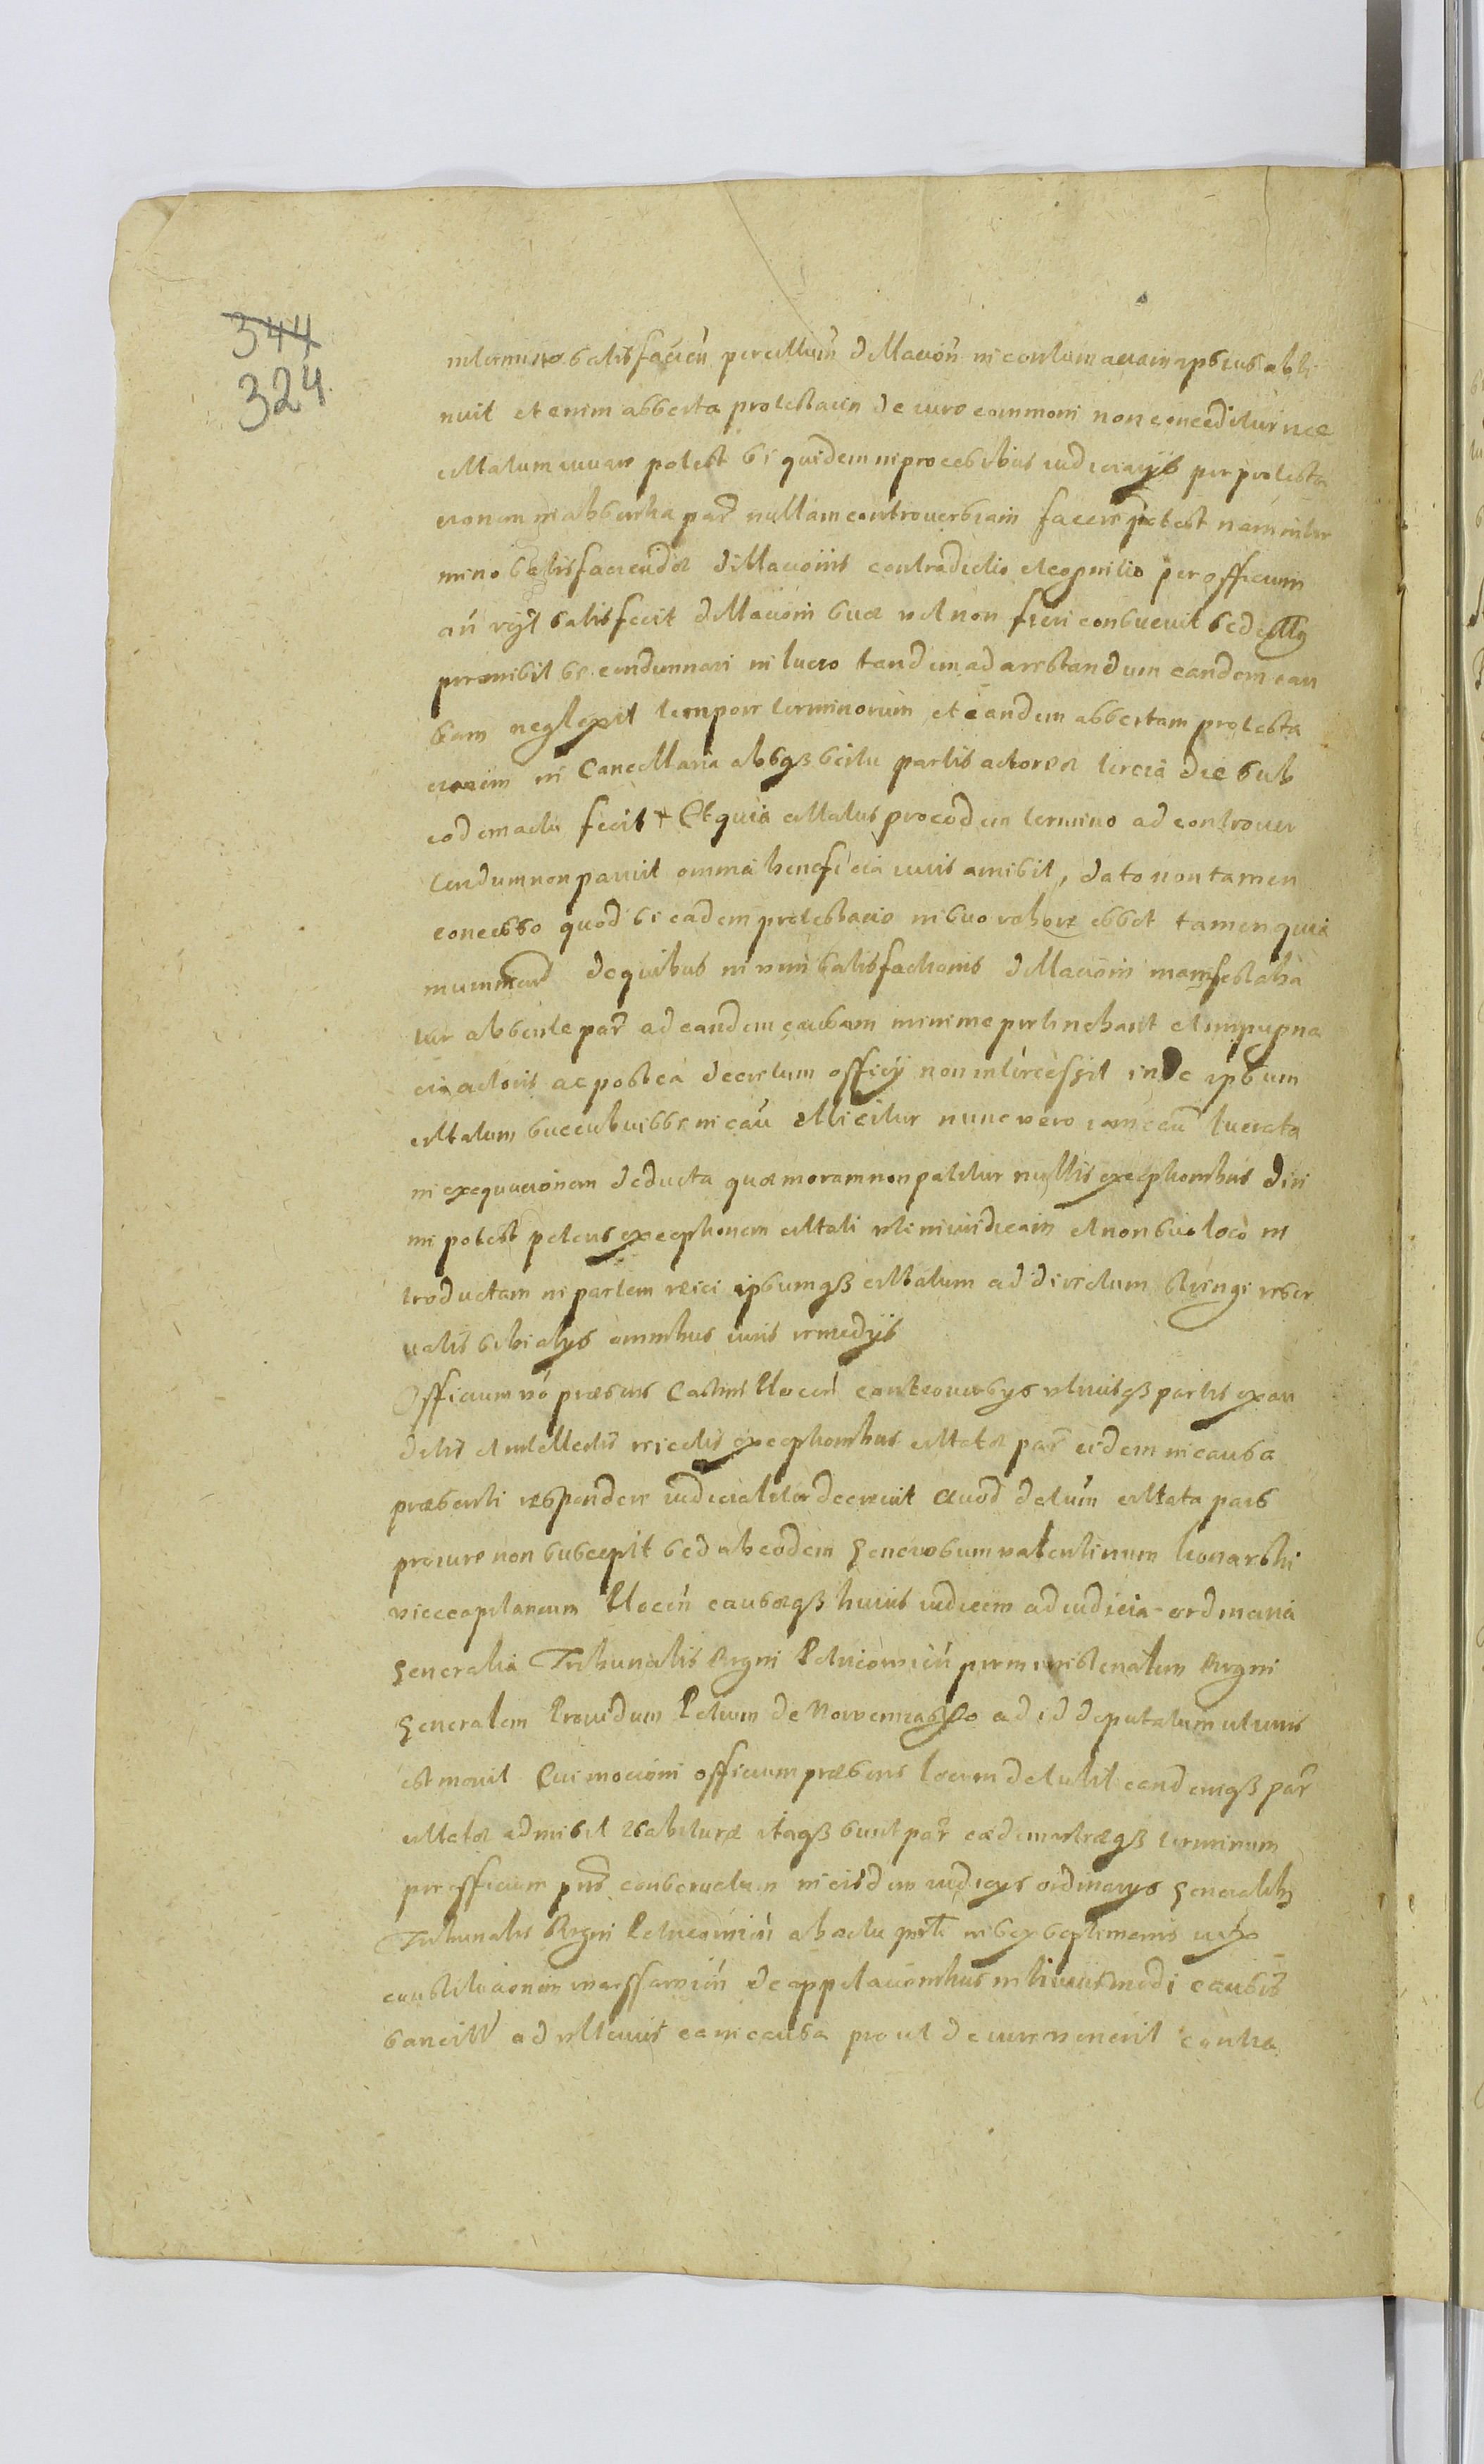 344
324
in termino satisfacien per citatum dillation in contumaciam ipsius abti
nuit et enim asserta protestacio de iure commoni non conceditur nec
citatum iuuare potest si quidem in processibus iudiciarijs per protesta
cionem in absentia par nullam controuersiam facere potest nam in ter
mino satisfaciendae dillationis contradictio et cognitio per officium
an ryt satisfecit dillationi suae vel non fieri consueuit sed
permisit se condemnari in lucro tandem ad arrestandum eandem cau
sam neglexit tempore terminorum et eandem assertam protesta
cionem in Cancellaria absqȝ scitu partis actoreae tercia die sub
eodem actu fecit + Et quia citatus pro eodem termino ad controuer
tendum non paruit omnia beneficia iuris amisit, dato non tamen
concesso quod si eadem protestacio in suo robore esset tamen quia
munimend de quibus in vim satisfactionis dillationis manifestaba
tur absente par ad eandem causam minime pertinebant et impugna
cia actoris ac postea decretum officij non intercessit inde ipsum
citatum succubuisse in cau ellicitur nunc vero iam cau lucrata
in exequucionem deducta quae moram non patitur nullis exceptionibus diri
mi potest petens exceptionem citati vti iniuridicam et non suo loco in
troductam in partem reici ipsumqȝ citatum ad directum stringi reser
uatis sibi alijs omnibus iuris remedijs
Officium vo praesens Castren Uocen controuersijs vtriusqȝ partis exau
ditis et intellectis reiectis exceptionibus citatae par eidem in causa
praesenti respondere iudicialiter decreuit Quod detum citata pars
pro iure non suscepit sed ab eodem generosum valentinum
vicecapitaneum Uocen causaeqȝ huius iudicem ad iudicia ordinaria
generalia Tribunalis Regni Petricouien per ministerialem Regni
generalem Prouidum Petrum de ad id deputatum vt iuris
est mouit Cui mocioni officium praesens locum detulit eandemqȝ par
citatae admisit itaqȝ sunt par eaedem vtraeqȝ terminum
per officium pns conseruatum in eisdem iudicijs ordinarijs generalibȝ
Tribunalis Regni Petricouien ab actu pnti in sex septimanis iuxta
constitucionem varssauien de appelacionibus in huiusmodi causis
sancitt ad vlteriis ea in causa prout de iure venerit contra